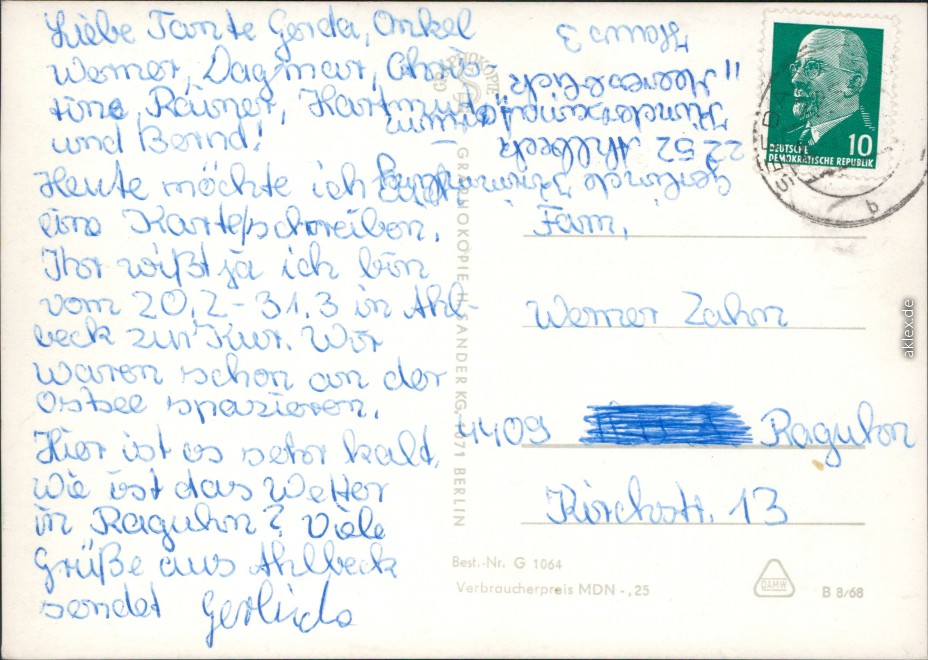 Liebe Tante Gerda, Onkel
Werner, Dagmar, Chris-
tine, Rainer, Hartmut
und Bernd!
Heute möchte ich Euch
eine Karte schreiben.
Ihr wißt ja ich bin
vom 20.2-31.3 in Ahl-
beck zur Kur. Wir
waren schon an der
Ostsee spazieren.
Hier ist es sehr kalt.
Wie ist das Wetter
in Raguhn? Viele
Grüße aus Ahlbeck
sendet Gerlinde
Gerlinde
2252 Ahlbeck
"Meeresblick"
Haus 3
GRAPHOKOPIE H. SANDER KG, 1071 BERLIN
DEUTSCHE
DEMOKRATISCHE REPUBLIK
10
Fam.
Werner Zahn
4409 Raguhn
Kirchstr. 13
Best.-Nr. G 1064
Verbraucherpreis MDN -,25
DAMW
B 8/68
aklex.de